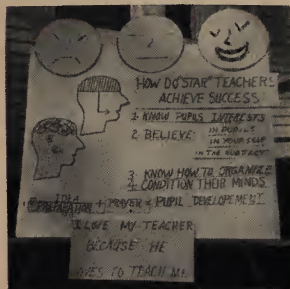 HOW DO "STAR" TEACHERS
ACHIEVE SUCCESS
1. KNOW PUPILS INTERESTS
2. BELIEVE: IN PUPILS
IN YOUR SELF
IN THE SUBJECT
3. KNOW HOW TO ORGANIZE
4. CONDITION THEIR MINDS
IDEA
PREPARATION + PRAYER = PUPIL DEVELOPEMENT
I LOVE MY TEACHER
BECAUSE HE
LOVES TO TEACH ME